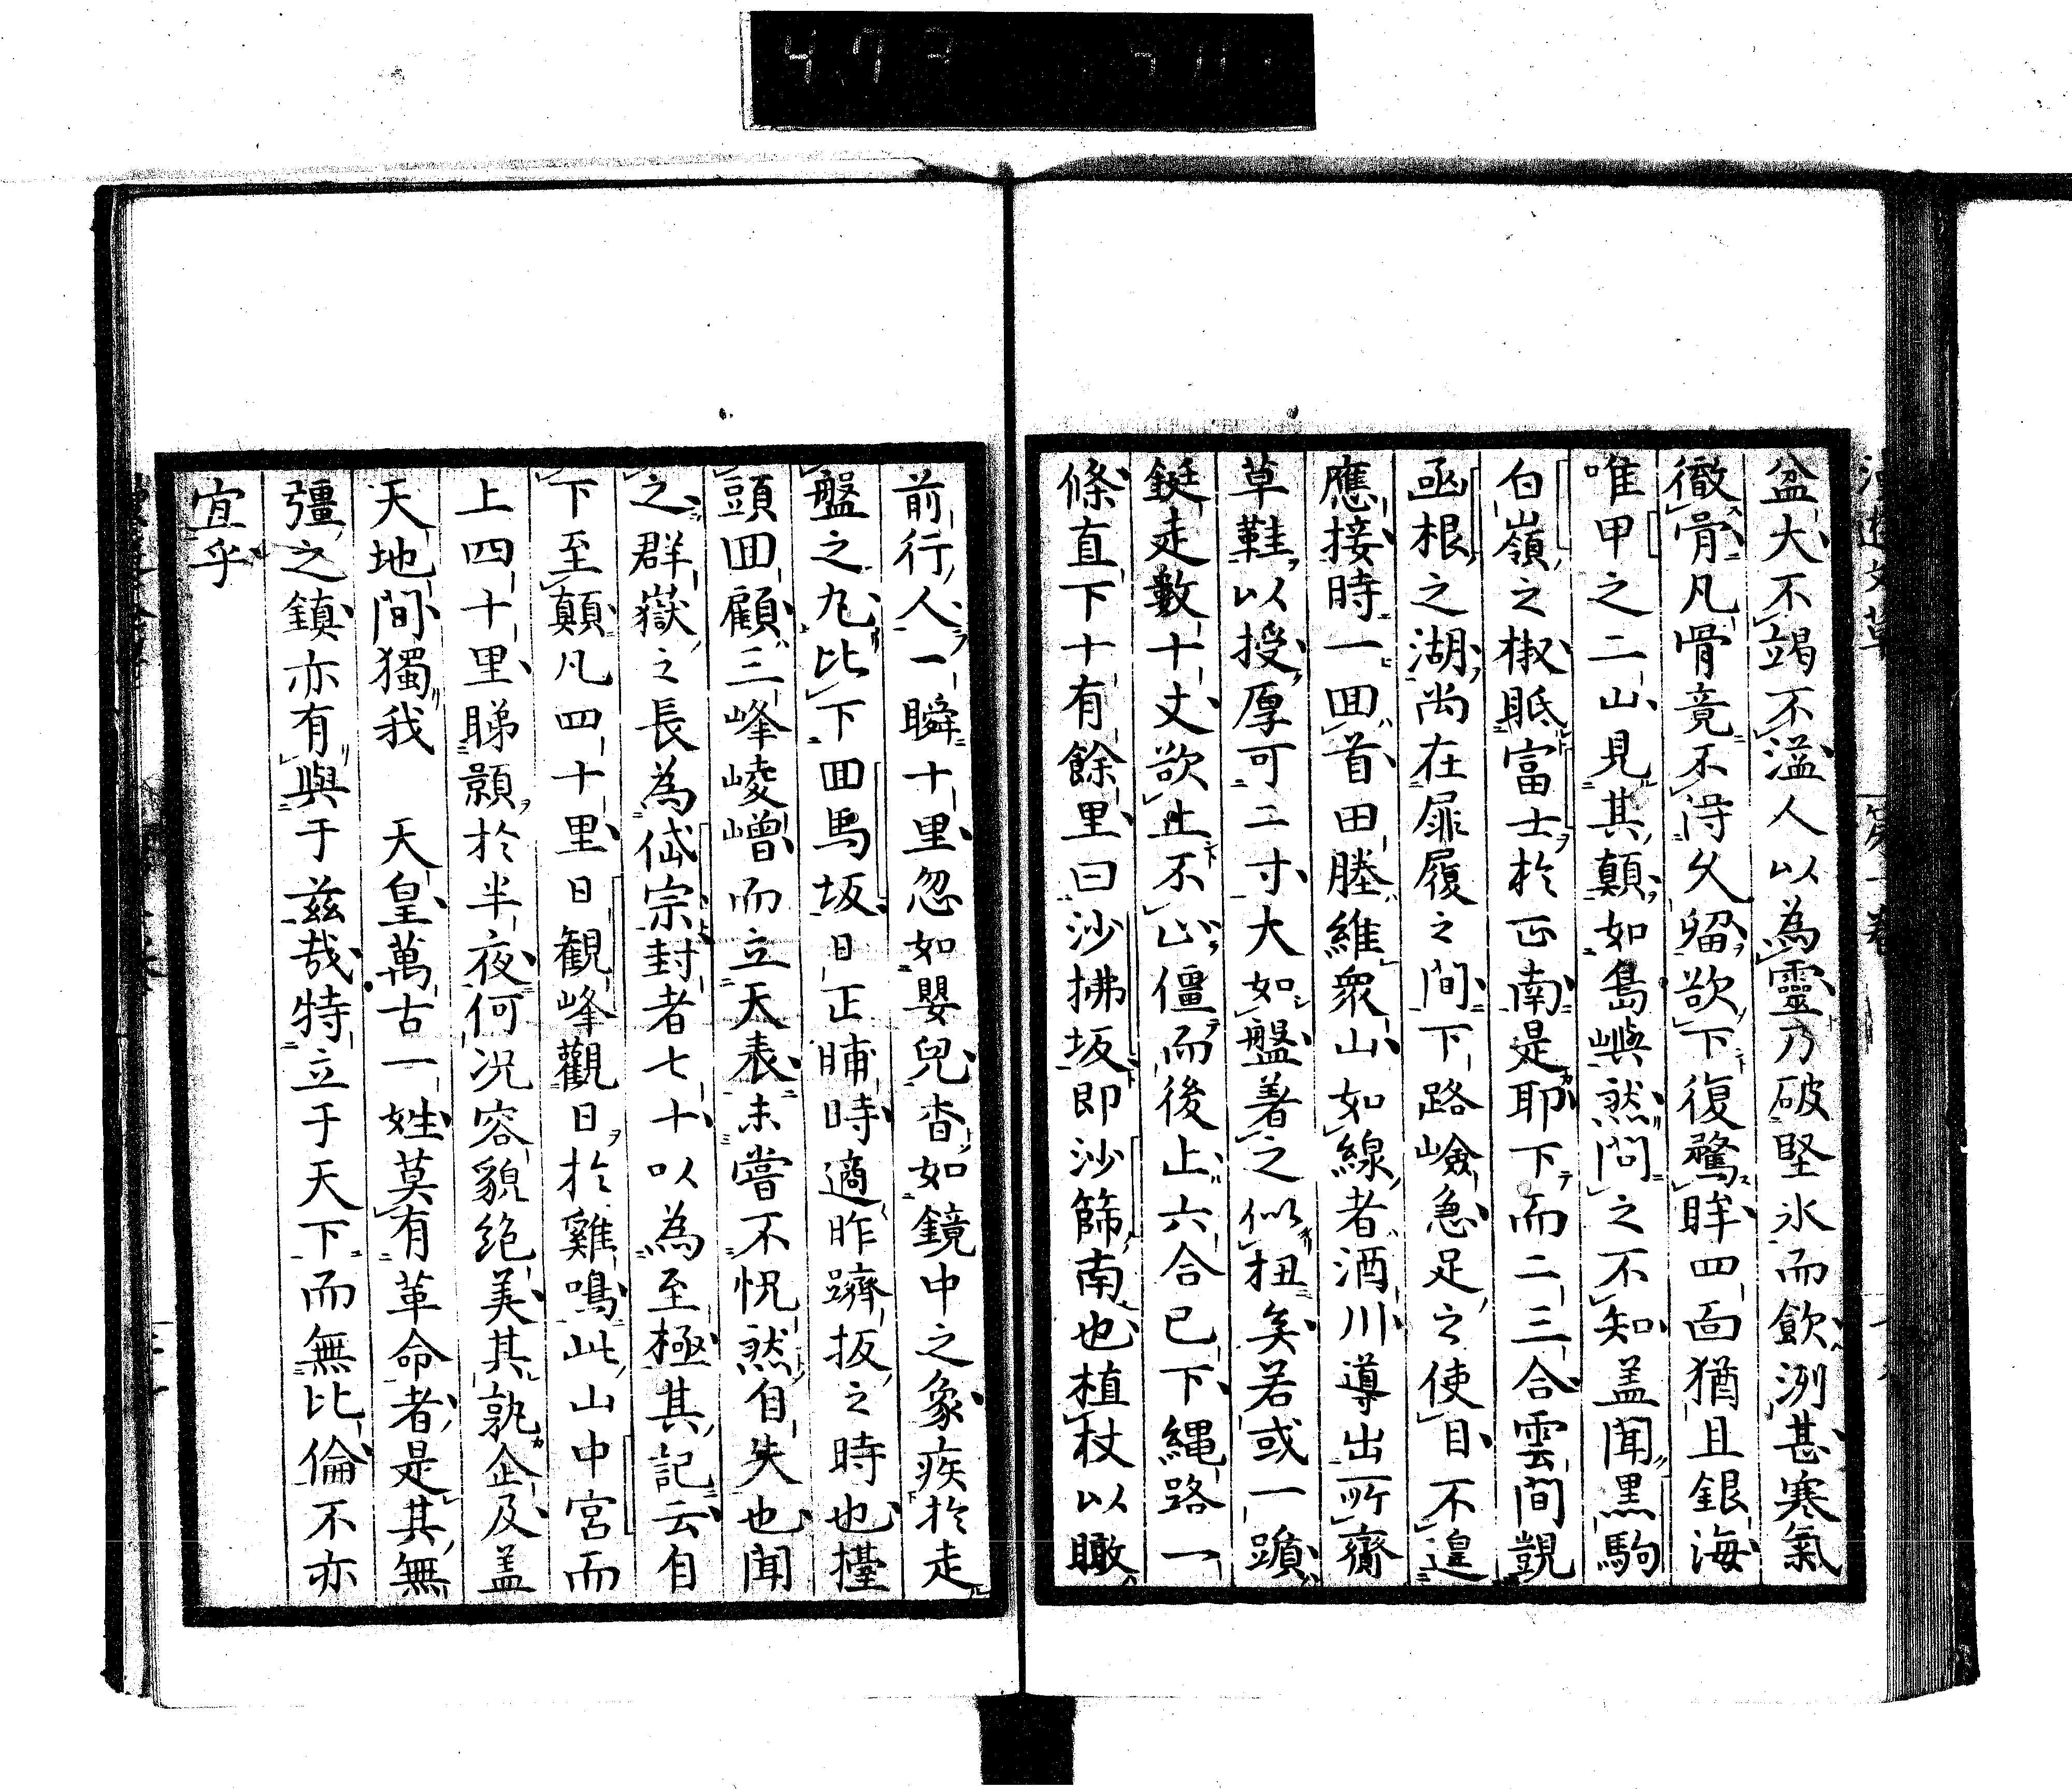 盆大不竭不溢人以為靈乃破堅氷而飲洌甚寒氣
徹骨凡骨竟不得久留欲下復騖眸四面猶且銀海
唯甲之二山見其顛如島嶼然問之不知盖聞黒駒
白嶺之椒眡富士於正南是耶下而二三合雲間覬
函根之湖尚在屝履之間下路嶮急足之使目不遑
應接時一囬首田塍維衆山如線者酒川導出所齎
草鞋以授厚可二寸大如盤着之似扭矣若或一躓
鋌走數十丈欲止不止僵而後止六合已下縄路一
條直下十有餘里曰沙拂坂即沙篩南也植杖以瞰
前行人一瞬十里忽如嬰兒杳如鏡中之象疾於走
盤之丸比下囬馬坂日正晡時適昨躋扳之時也擡
頭囬顧三峰崚嶒而立天表未嘗不怳然自失也聞
之群嶽之長為岱宗封者七十以為至極其記云自
下至顛凡四十里日観峰觀日於雞鳴此山中宮而
上四十里睇顥於半夜何況容貌絶美其孰企及盖
天地間獨我　天皇萬古一姓莫有革命者是其無
彊之鎮亦有與于茲哉特立于天下而無比倫不亦
宜乎